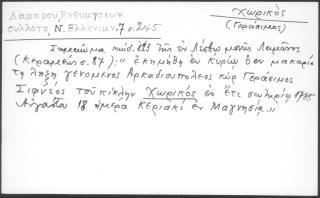 Λάμπρου, Ἐνθυμήσεων
συλλογή, Ν. Ἑλληνομν. 7 σ. 245
Χωρικὸς
(Γεράσιμος)
Σημείωμα κώδ. τῆς ἐν Λέσβῳ μονῆς Λειμῶνος
(Κεραμεὺς σ. 87): " ἐκημήθη ἐν Κυρίῳ ὁ ἐν μακαρίᾳ
τῇ λήξῃ γενόμενος Ἀρκαδιουπόλεος κὺρ Γεράσιμος
Σιφνέος τοὐπίκλην Χωρικὸς ἐν ἔτι σωτηρίῳ 1785
Αὐγούστου 18 ἡμέρᾳ Κεριακὶ ἐν Μαγνησίᾳ."